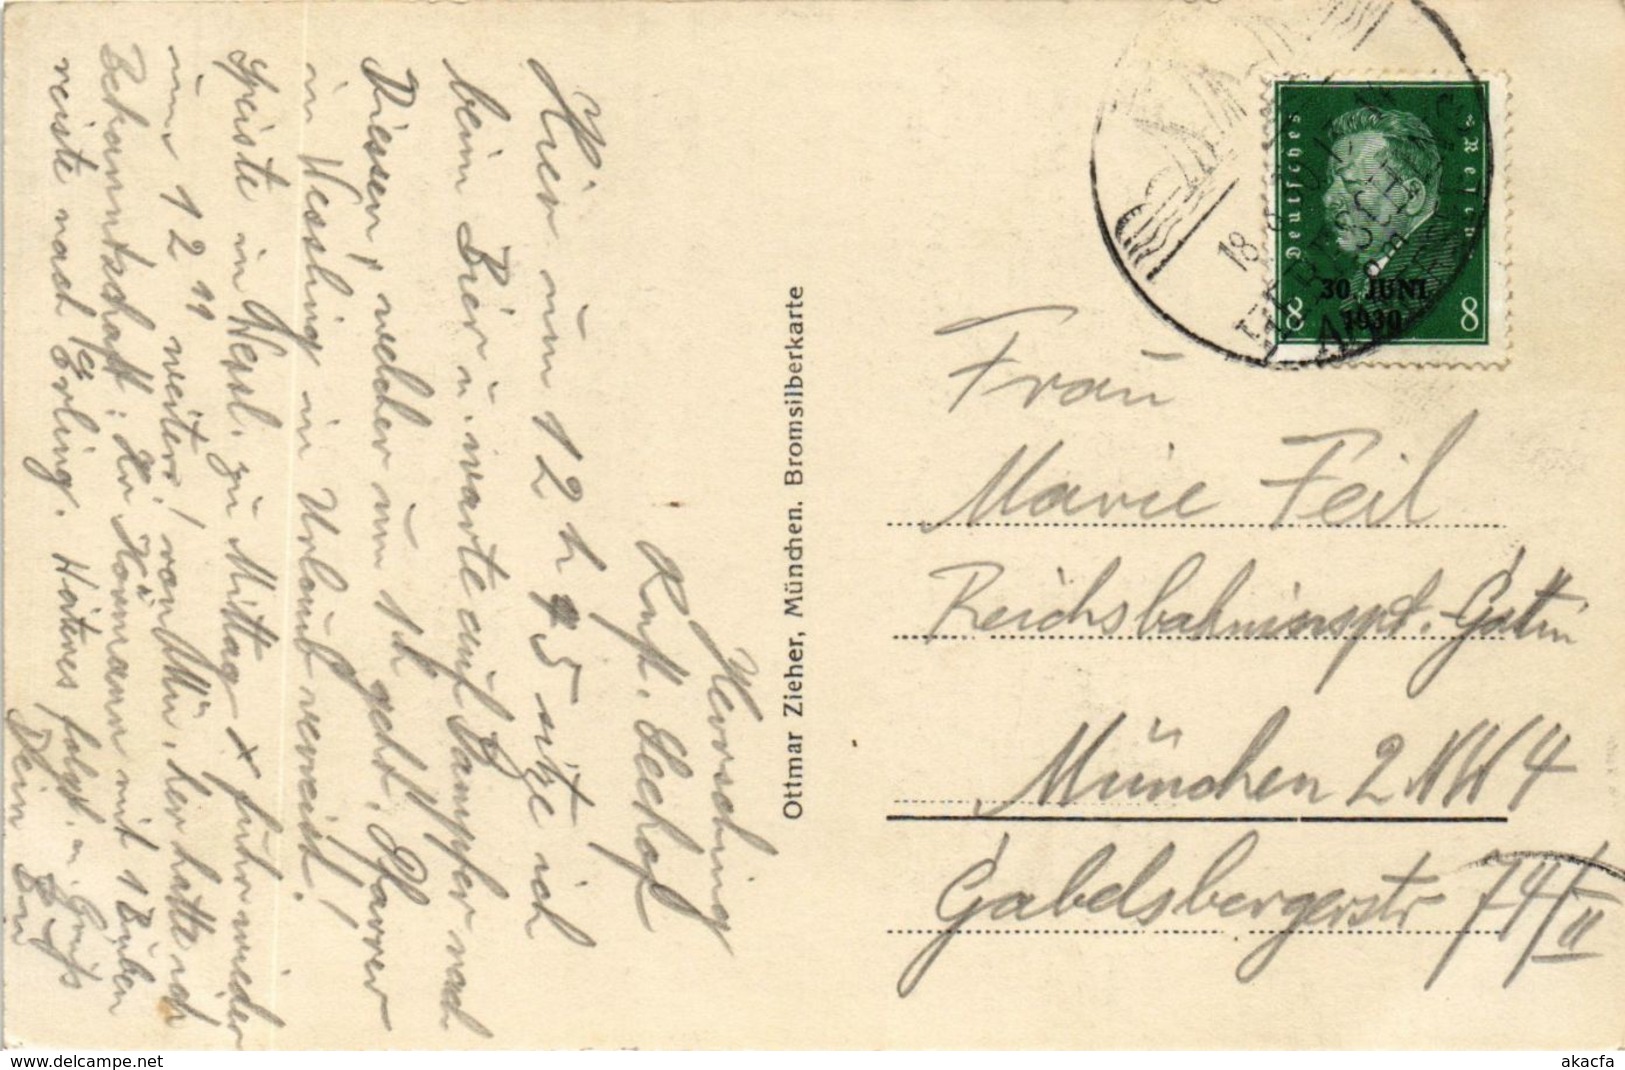 Herrsching
Rest. Seehof
Hier um 12 h 45 sitze ich
beim Bier u. warte auf Dampfer nach
Diessen, welcher um 1h geht. Pfarrer
in Wessling in Urlaub verreist!
Speiste in Wessl. zu Mittag + fuhr wieder
um 12 11 weiter! von Mü. her hatte ich
Bekanntschaft: Hr Hörmann mit 1 Buben
reiste nach Erling. Weiteres folgt. n Gruß
Dein
Ottmar Zieher, München. Bromsilberkarte
Deutsches Reich
30. JUNI
1930
8 8
18.
Frau
Marie Feil
Reichsbahninspkt.-Gattin
München 2 NW 4
Gabelsbergerstr 74/II
www.delcampe.net
akacfa